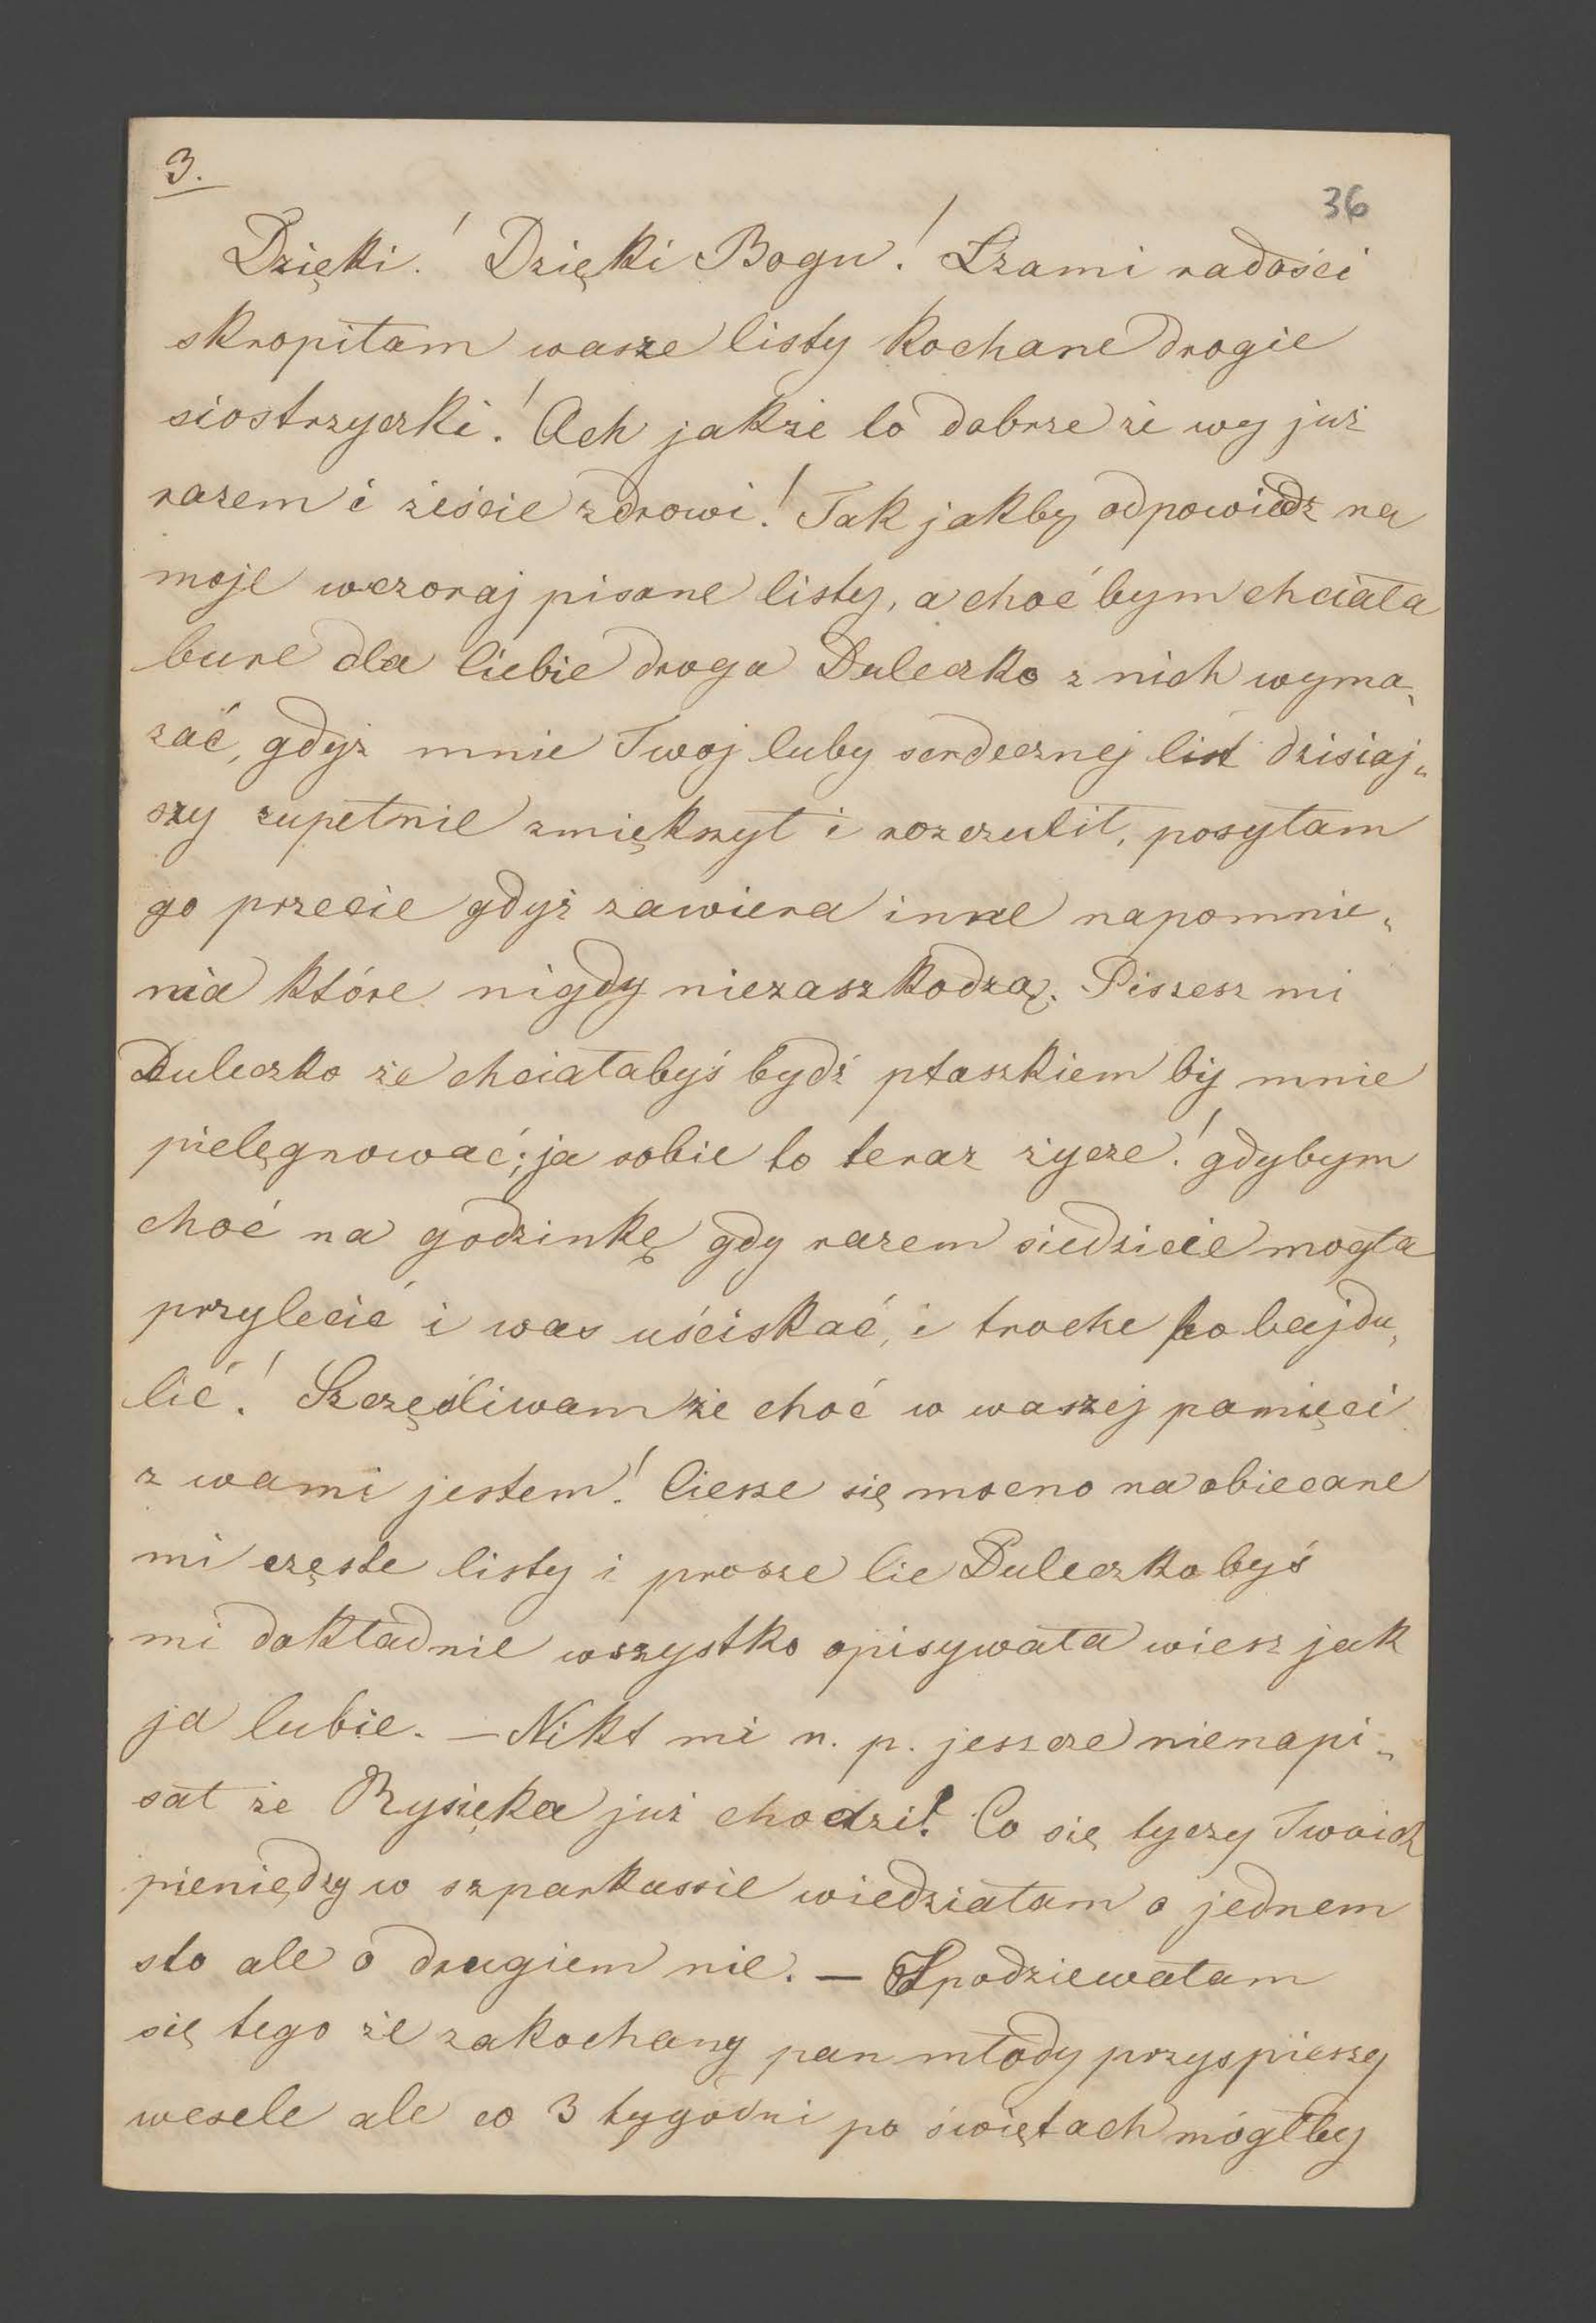 3.
36
Dzięki! Dzięki Bogu! Łzami radości
skropiłam wasze listy kochane drogie
siostrzyczki! Ach jakże to dobrze że wy już
razem i żeście zdrowi! Tak jakby odpowiedz na
moje wczoraj pisane listy, a choć bym chciała
bure dla Ciebie droga Duleczko z nich wyma„
zać, gdyż mnie Twoj luby serdecznej list dzisiaj„
szy zupełnie zmiększył i rozczulił, posyłam
go przecie gdyż zawiera inne napomnie„
nia które nigdy niezaszkodzą. Piszesz mi
Duleczko że chciałabyś bydź ptaszkiem by mnie
pielęgnować; ja sobie to teraz życze! gdybym
choć na godzinkę gdy razem siedzicie mogła
przylecić i was uściskać, i troche pobajdu„
lić! Szczęśliwam że choć w waszej pamięci
z wami jestem! Ciesze się mocno na obiecane
mi częste listy i prosze Cie Duleczko byś
mi dokładnie wszystko opisywała wiesz jak
ja lubie. — Nikt mi n. p. jeszcze nienapi„
sał że Rysięka już chodzi! Co się tyczy Twoich
pieniędzy w szparkassie wiedziałam o jednem
sto ale o drugiem nie. — Spodziewałam
się tego że zakochany pan młody przyspieszy
wesele ale co 3 tygodni po świętach mógłby